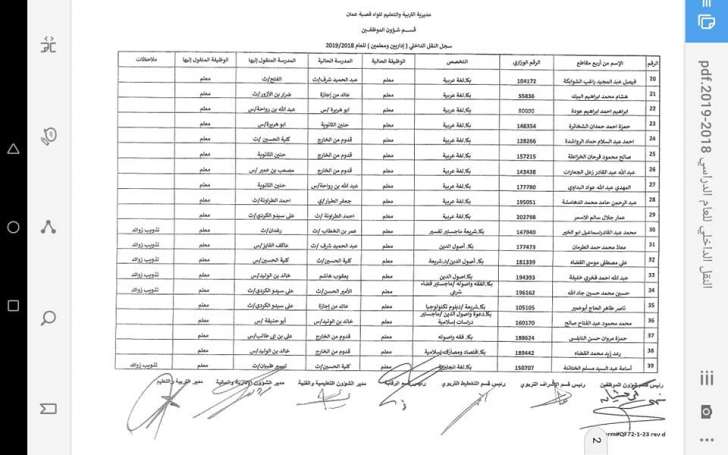 مديرية التربية والتعليم للواء قصبة عمان
قسم شؤون الموظفين
سجل النقل الداخلي ( إداريين ومعلمين ) للعام 2019/2018
الرقم الإسم من أربع مقاطع الرقم الوزاري التخصص الوظيفة الحالية المدرسة الحالية المدرسة المنقول إليها الوظيفة المنقول إليها ملاحظات
20 فيصل عبد المجيد راغب الشوابكة 104172 بكا.لغة عربية معلم عبد الحميد شرف/ث الفتح/ث معلم
21 هشام محمد ابراهيم 55836 بكا.لغة عربية معلم عائد من إجازة ضرار بن الازور/ث معلم
22 ابراهيم احمد ابراهيم عودة بكا.لغة عربية معلم ابو هريرة /س عبد الله بن رواحة/س معلم
23 حمزة احمد حمدان الشخاترة 148354 بكا.لغة عربية معلم حنين الثانوية ابو هريرة/س معلم
24 احمد عبد السلام حماد الرواشدة 128266 بكا.لغة عربية معلم قدوم من الخارج كلية الحسين /ث معلم
25 صالح محمود فرحان الخزاعلة 157215 بكا.لغة عربية معلم قدوم من الخارج حنين الثانوية معلم
26 عبد الله عبد القادر زعل الجعارات 143438 بكا.لغة عربية معلم قدوم من الخارج مصعب بن عمير /س معلم
27 المهدي عبد الله عواد البداوي 177780 بكا.لغة عربية معلم عبد الله بن رواحة/س حنين الثانوية معلم
28 عبد الرحمن حامد محمد الدهامشة 195051 بكا.لغة عربية معلم جعفر الطيار/ث احمد الطراونة/ث معلم
29 عمار جلال سالم الاسمر 202798 بكا.لغة عربية معلم احمد الطراونة /ث علي سيدو الكردي/ث معلم
30 محمد عبد القادر اسماعيل ابو الخير 147940 بكا.شريعة ماجستير تفسير معلم عمر بن الخطاب /ث رغدان/ث معلم تذويب زوائد
31 معاذ محمد حمد الطرمان 177473 بكا. أصول الدين معلم عبد الحميد شرف /ث عاكف الفايز/س معلم تذويب زوائد
32 علي مصطفى موسى القضاة 181399 بكا. أصول الدين/د.شريعة معلم كلية الحسين/ث كلية الحسين/س معلم تذويب زوائد
33 عبد الله احمد فخري خليفة 194393 بكا.اصول الدين معلم يعقوب هاشم خالد بن الوليد/س معلم تذويب زوائد
34 حسين محمد حسين جاد الله 196162 بكا.الفقه واصوله /ماجستير قضاء شرعي معلم الأمير الحسن/ث علي سيدو الكردي/ث معلم تذويب زوائد
35 ناصر طاهر الحاج ابوعمير 105105 بكا.شريعة /دبلوم تكنولوجيا معلم عائد من إجازة علي سيدو الكردي/ث معلم
36 محمد محمود عبد الفتاح صالح 160170 بكا.دعوة واصول الدين /ماجستير دراسات إسلامية معلم خالد بن الوليد/س أبو حذيفة /س معلم
37 حمزة مروان حسن النابلسي 188624 بكا. فقه واصوله معلم قدوم من الخارج علي بن ابي طالب/س معلم
38 رعد زيد محمد القضاه 189442 بكا.اقتصاد ومصارف إسلامية معلم قدوم من الخارج خالد بن الوليد/س معلم
39 أسامة عبد السيد مسلم الختاتنة 150707 بكا.لغة انجليزية معلم كلية الحسين/ث معلم تذويب زوائد
رئيس قسم شؤون الموظفين رئيس قسم الإشراف التربوي رئيس قسم التخطيط التربوي رئيس قسم الرقابة مدير الشؤون التعليمية والفنية مدير الشؤون الإدارية والمالية مدير التربية والتعليم
form#QF72-1-23 rev d
2
النقل الداخلي للعام الدراسي 2018-2019.pdf